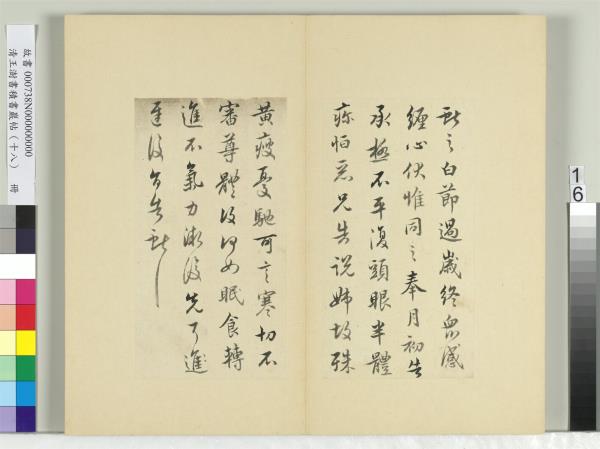 獻之白節過歲終眾感
纏心伏惟同之奉月初告
承極不平復頭眼半體
惡兄告說姊故殊
黃瘦憂馳可言寒切不
審尊體復何如眠食轉
進不氣力漸復先了進
復告獻
故書 000738N000000000
清王澍書積書巖帖(十八) 冊
16